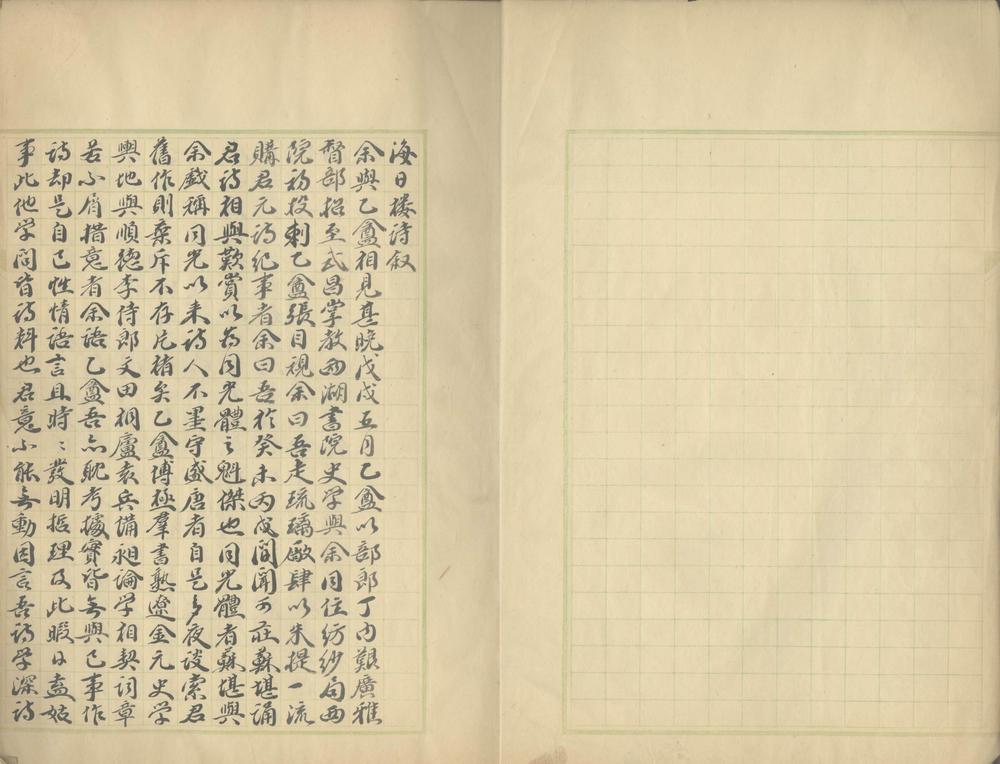 海日楼诗叙
余與乙盦相見甚晚戊戌五月乙盦以部郎丁内艱廣雅
督部招至武昌掌教兩湖書院史学與余同住紡纱局西
院初投刺乙盦張目視余曰吾走琉璃厰肆以朱提一流
購君元诗纪事者余曰吾於癸未丙戌閒聞可莊蘇堪诵
君诗相與歎賞以為同光體之魁傑也同光體者蘇堪與
余戯稱同光以来诗人不墨守盛唐者自是多夜谈索君
舊作則棄斥不存片楮矣乙盦博極羣書熟遼金元史学
輿地與順德李侍郎文田桐廬袁兵備昶論学相契词章
若不屑措意者余語乙盦吾亦耽考據實皆無與己事作
诗却是自己性情语言且時〻發明哲理及此暇日盍姑
事此他学问皆诗料也君意不能無動因言吾诗学深诗